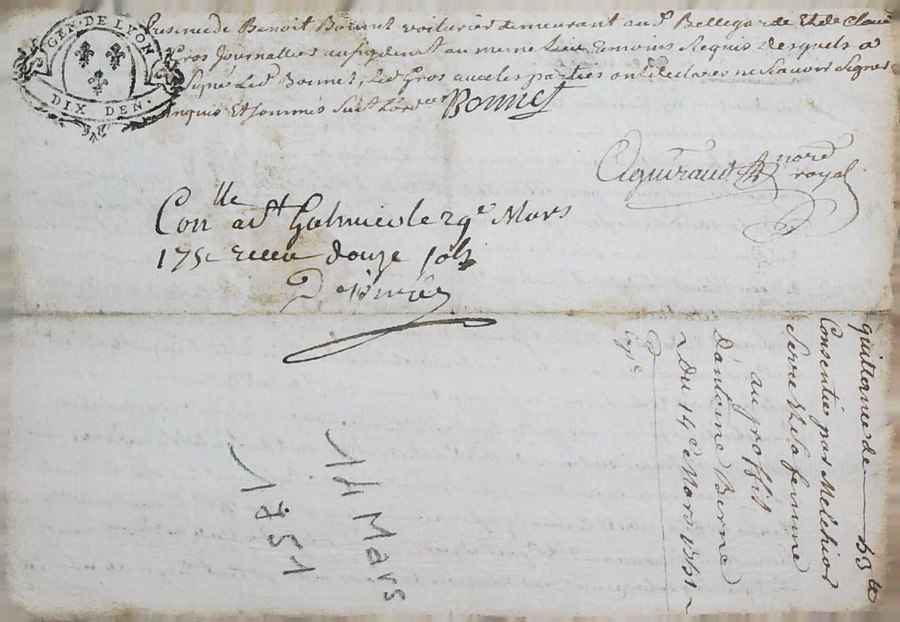 GEN. DE LYON
DIX DEN.
Presence de Benoit Bonnet voiturier demeurant au St Bellegarde Et de Claude
Gros Journallier au meme Lieu temoins Requis Lesquels a
Signé Led. Bonnet, Led. Gros avec les parties ont declarés ne Scavoir Signer
Enquis Et Sommés
Bonnet
Aguiraud
nore
royal
Conlle a St Galmier le 29e Mars
175 receu douze sols
quittance de 53 lt
Consentie par Melchior
Serre Et Sa femme
au proffit
d'antoine Berne
Du 14e Mars 1751
Expe
14 Mars
1751